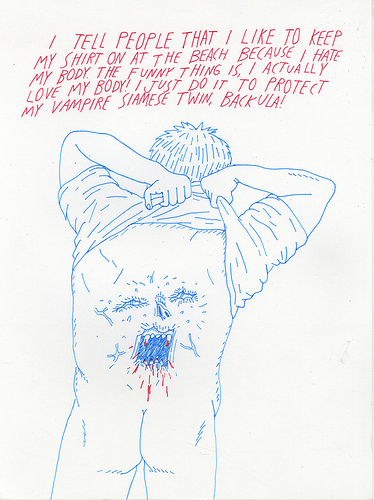 I TELL PEOPLE THAT I LIKE TO KEEP
MY SHIRT ON AT THE BEACH BECAUSE I HATE
MY BODY. THE FUNNY THING IS, I ACTUALLY
LOVE MY BODY! I JUST DO IT TO PROTECT
MY VAMPIRE SIAMESE TWIN, BACKULA!